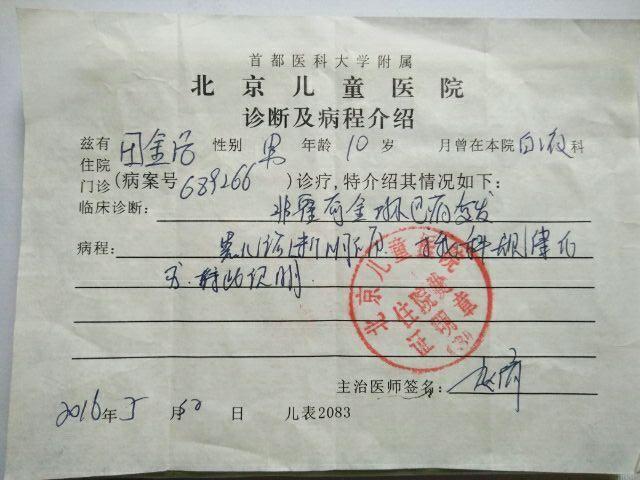 首都医科大学附属
北京儿童医院
诊断及病程介绍
兹有 金 性别 男 年龄 10 岁 月曾在本院 白血液 科
住院
门诊 (病案号 689266 )诊疗,特介绍其情况如下:
临床诊断: 非霍奇金淋巴瘤复发
病程: 患儿 科规律化
疗.特此说明
北京儿童医院
住院
证明章
(3)
主治医师签名:
2016年 5 月 日 儿表2083